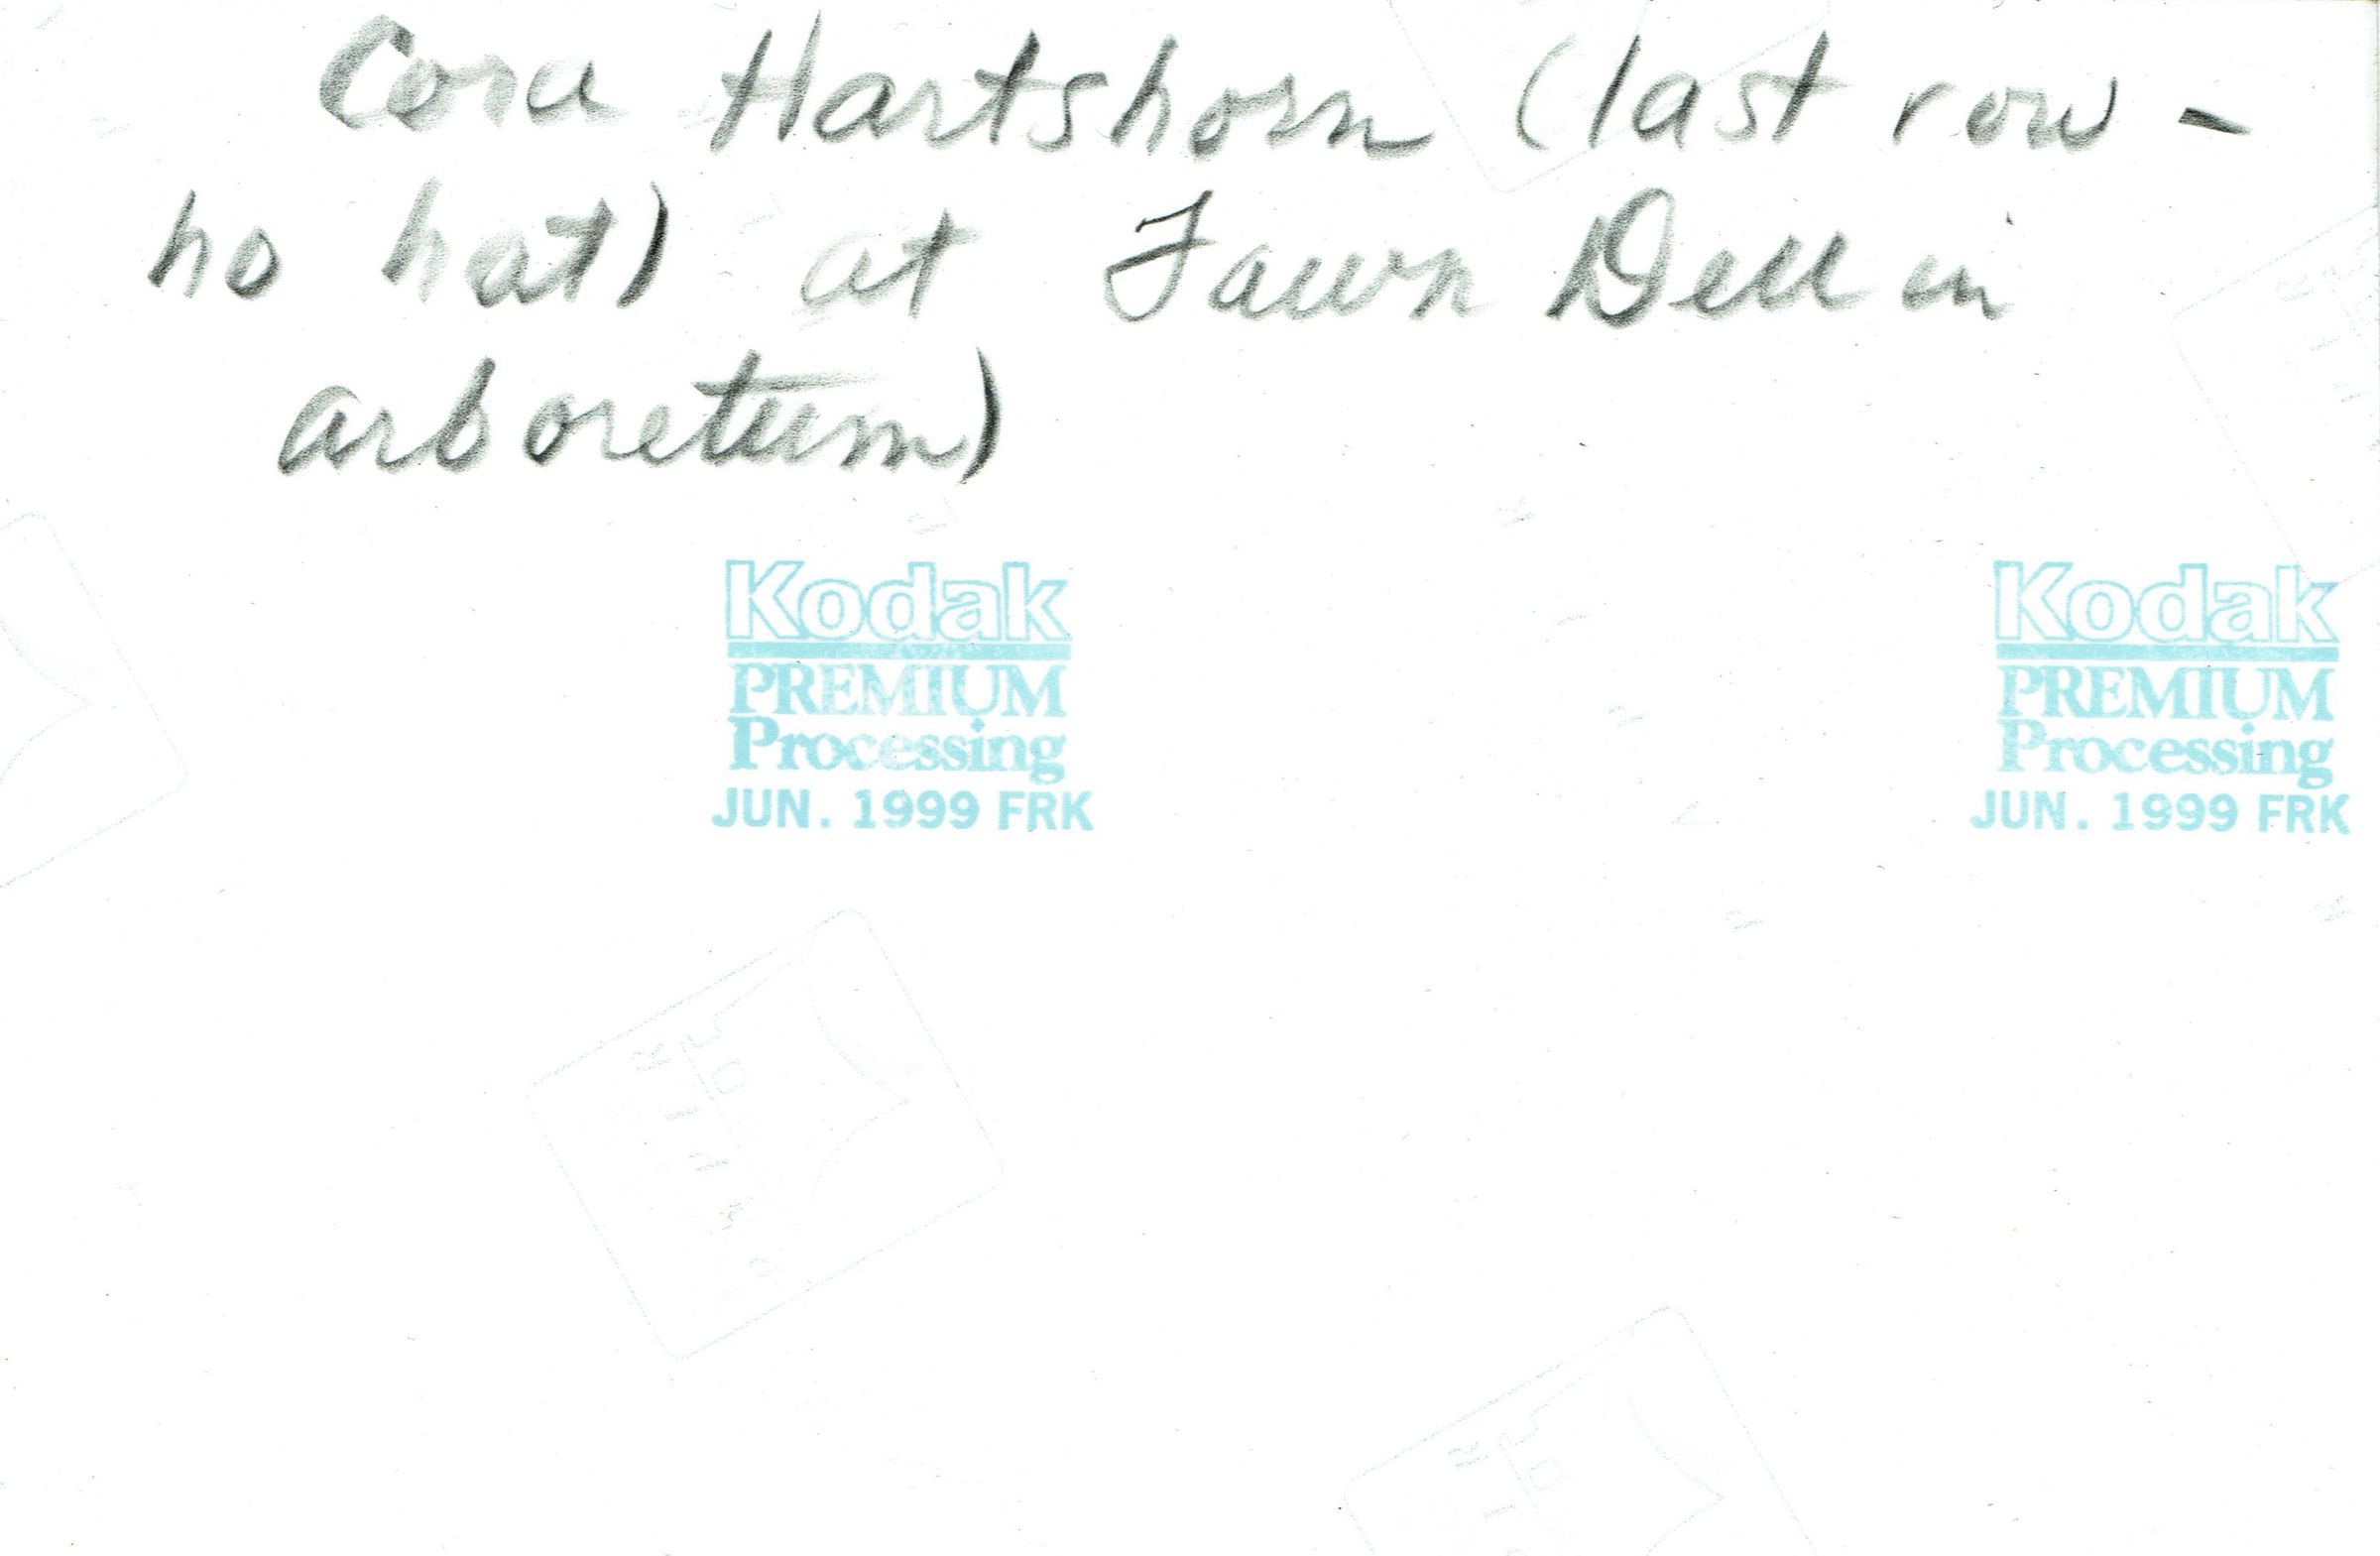 Cora Hartshorn (last row -
no hat) at Fawn Dell in
arboretum)
Kodak
PREMIUM
Processing
JUN. 1999 FRK
Kodak
PREMIUM
Processing
JUN. 1999 FRK